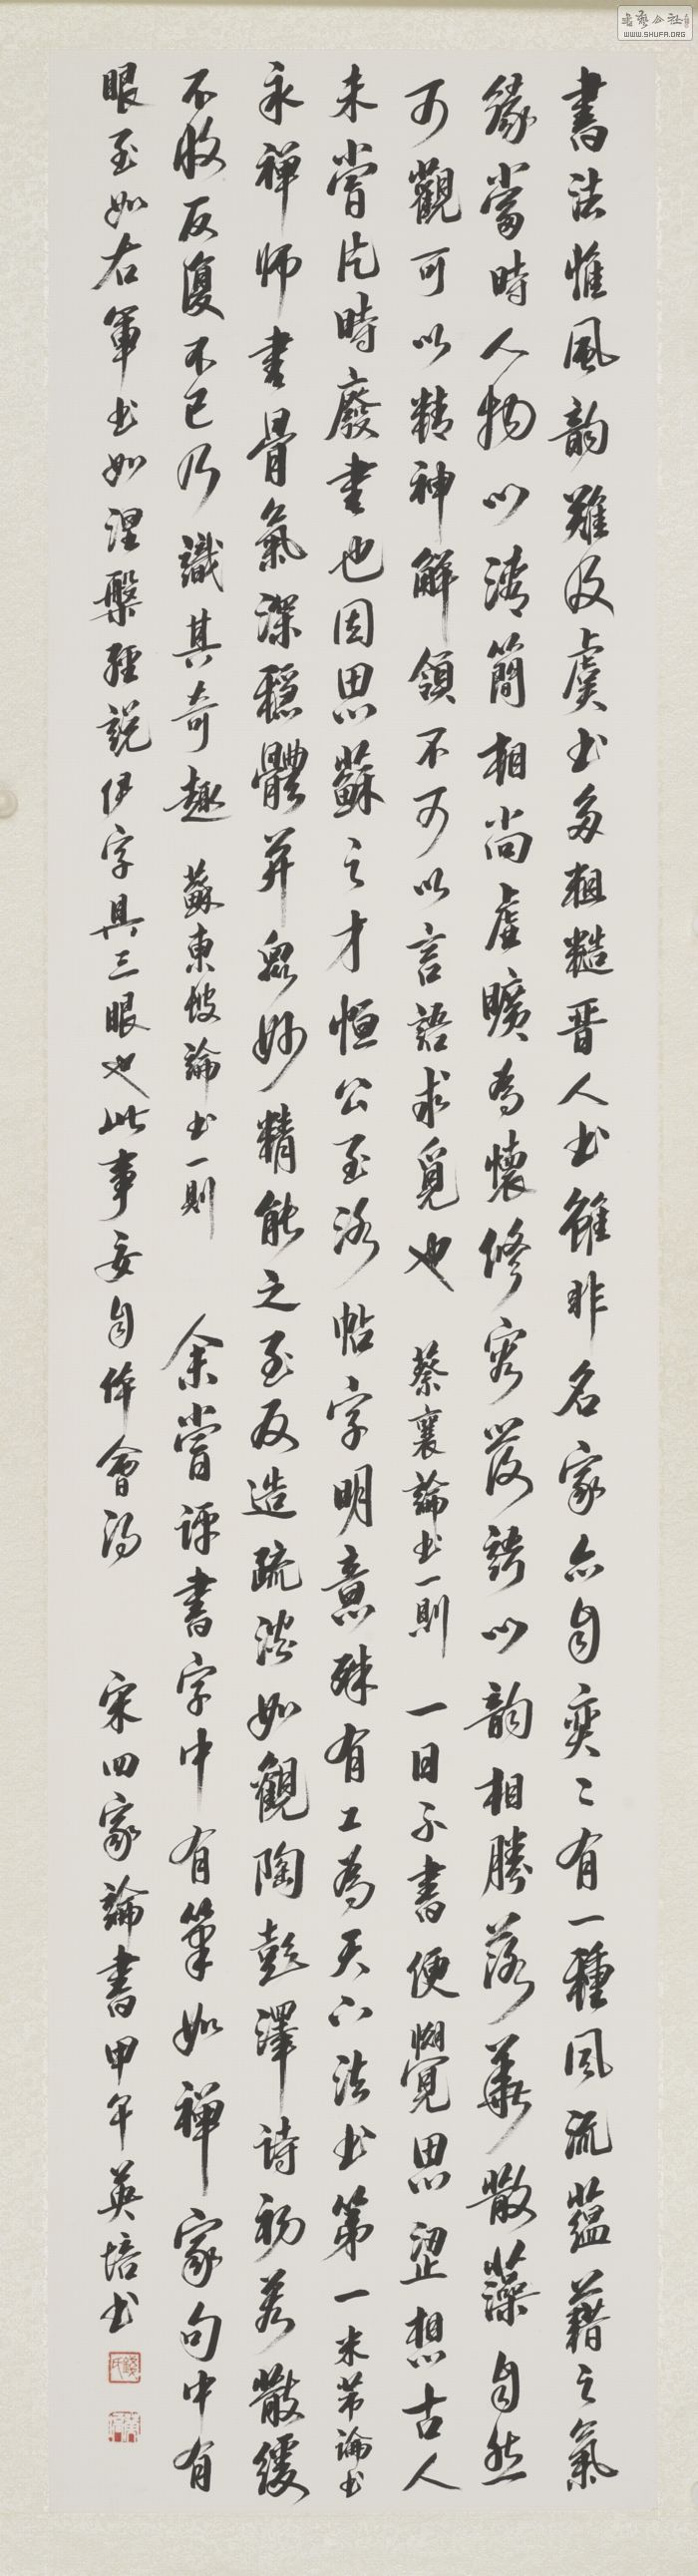 書法惟風韵難及虞書多粗糙晋人書雖非名家亦自奕〻有一種風流蘊藉之氣
緣當時人物以清簡相尚虛曠為懷修容發語以韵相勝落華散藻自然
可觀可以精神解領不可以言語求覓也 蔡襄論書一則 一日不書便覺思澀想古人
未嘗片時廢書也因思蘇之才恒公至洛帖字明意殊有工為天下法書第一米芾論書
永禅師書骨氣深穩體并衆妙精能之至反造疏淡如觀陶彭澤詩初若散缓
不收反復不已乃識其奇趣 蘇東坡論書一則 余嘗評書字中有筆如禅家句中有
眼至如右軍书如涅槃經說伊字具三眼也此事要自体會得 宋四家論書甲午英培书
WWW.SHUFA.ORG